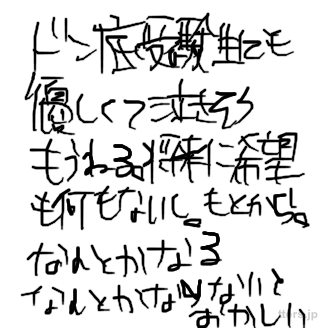 ドン底受験生でも
優しくて泣きそう
もうねる。将来に希望
も何もないし。もとから。
なんとかなる
なんとかなりないと
おかしい